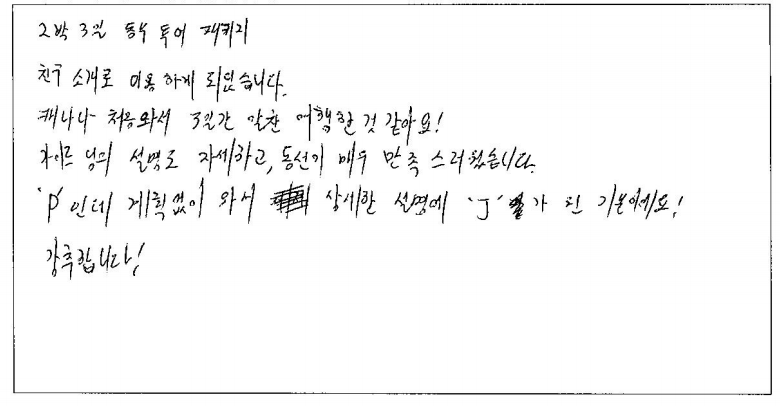 2박 3일 동부 투어 패키지
친구 소개로 이용하게 되었습니다.
캐나다 처음와서 3일간 알찬 여행한 것 같아요!
가이드님의 설명도 자세하고, 동선이 매우 만족스러웠습니다.
'P'인데 계획없이 와서 상세한 설명에 'J'가 된 기분이에요!
강추합니다!